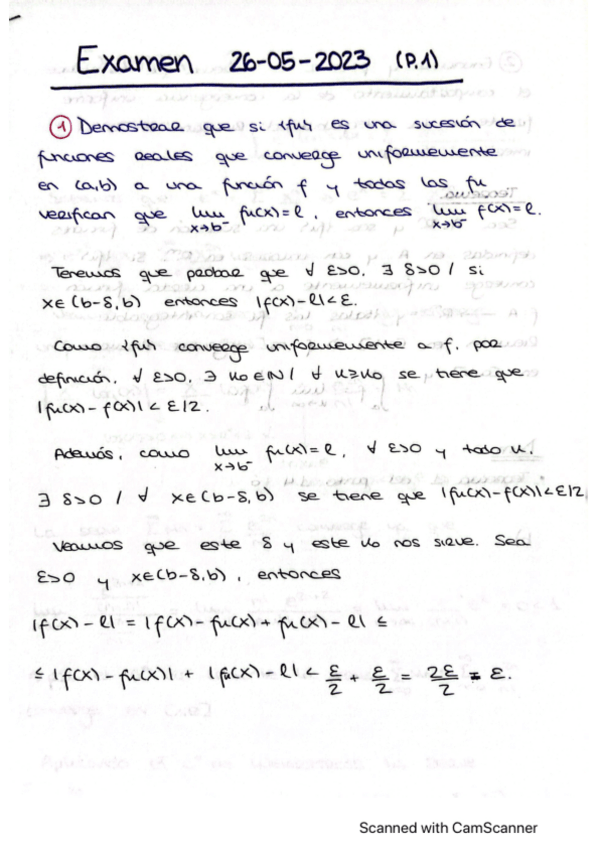 Examen 26-05-2023 (P.1)
① Demostrar que si {fn} es una sucesión de
funciones reales que converge uniformemente
en (a,b) a una función f y todas las fn
verifican que lim x→b⁻ fn(x)=l, entonces lim x→b⁻ f(x)=l.
Tenemos que probar que ∀ ε>0, ∃ δ>0 / si
x∈(b-δ,b) entonces |f(x)-l|<ε.
Como {fn} converge uniformemente a f, por
definición, ∀ ε>0, ∃ n₀∈ℕ / ∀ n≥n₀ se tiene que
|fn(x)-f(x)|<ε/2.
Además, como lim x→b⁻ fn(x)=l, ∀ ε>0 y todo n,
∃ δ>0 / ∀ x∈(b-δ,b) se tiene que |fn(x)-f(x)|<ε/2
Veamos que este δ y este n₀ nos sirve. Sea
ε>0 y x∈(b-δ,b), entonces
|f(x)-l| = |f(x)-fn(x)+fn(x)-l| ≤
≤ |f(x)-fn(x)| + |fn(x)-l| < ε/2 + ε/2 = 2ε/2 = ε.
Scanned with CamScanner